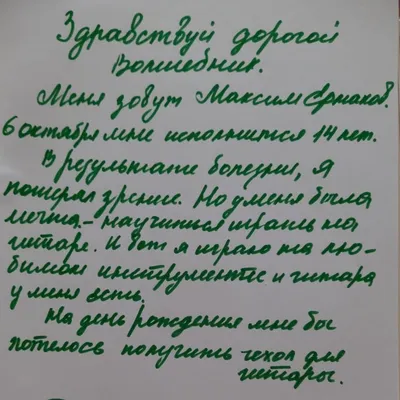 Здравствуй дорогой
Волшебник.
Меня зовут Максим Ермаков.
6 октября мне исполнится 14 лет.
В результате болезни, я
потерял зрение. Но у меня была
мечта - научиться играть на
гитаре. И вот я играю на лю-
бимом инструменте и гитара
у меня есть.
На день рождения мне бы
хотелось получить чехол для
гитары.